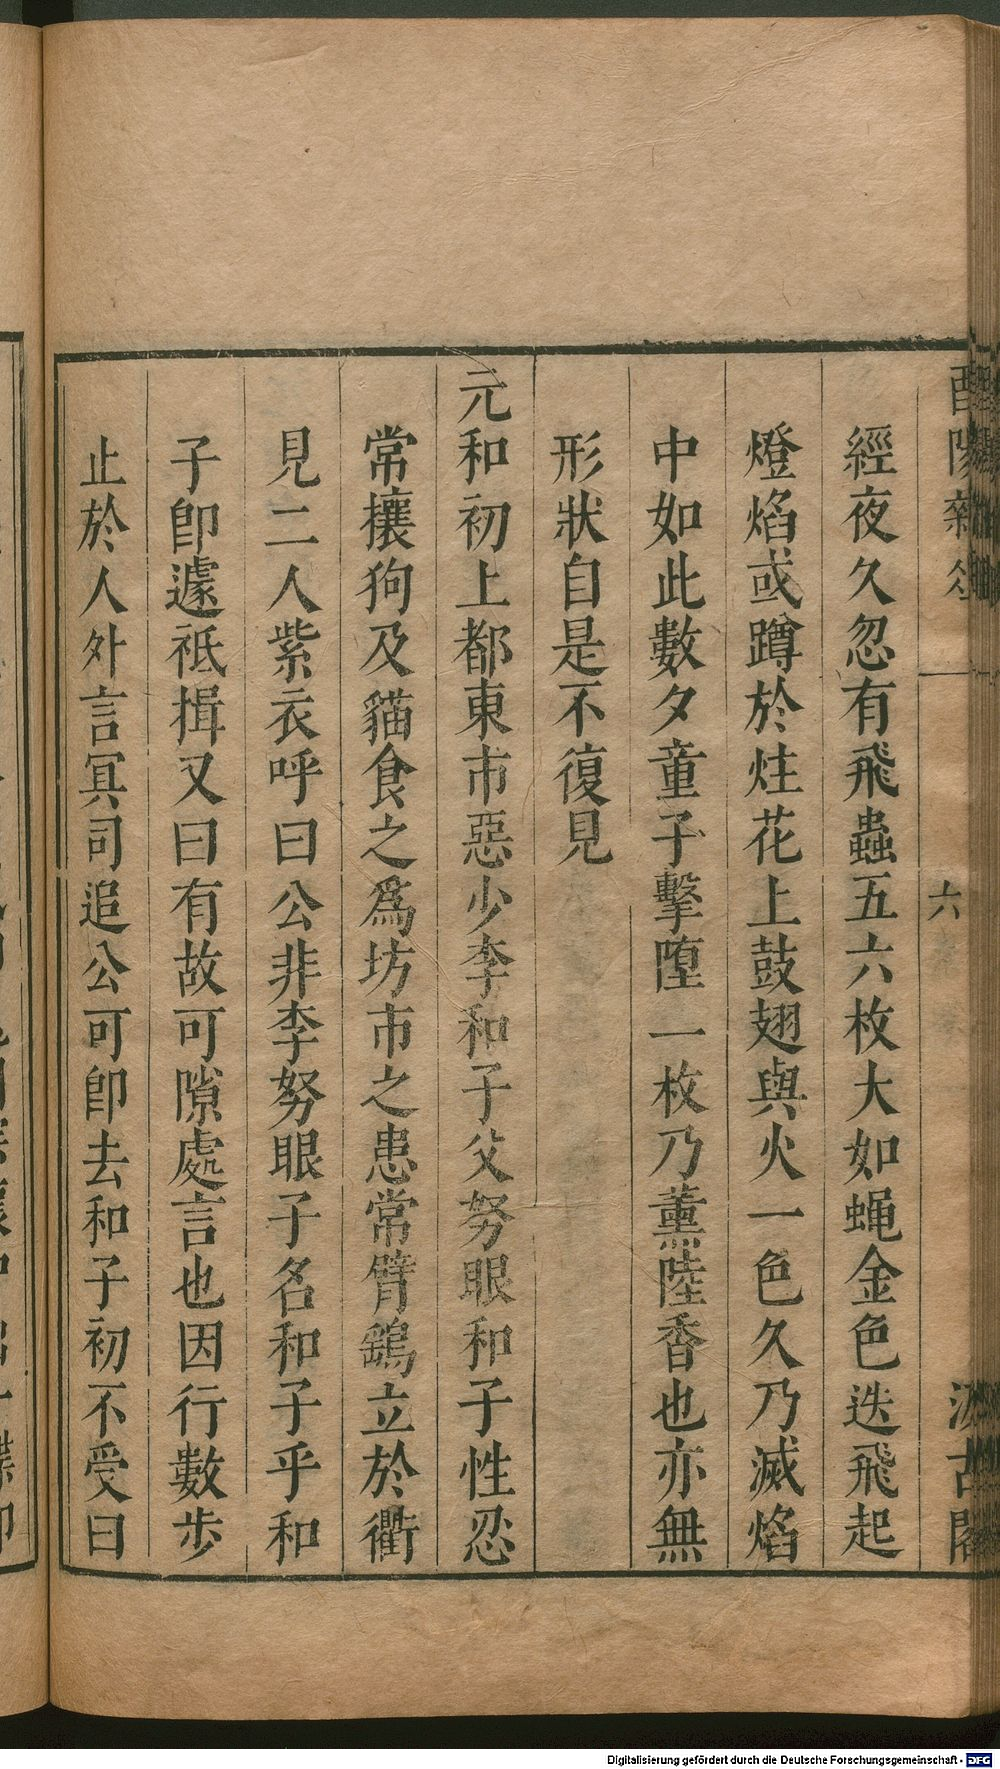 經夜久忽有飛蟲五六枚大如蝿金色迭飛起
燈焰或蹲於炷花上鼓翅與火一色久乃滅焰
中如此數夕童子擊墮一枚乃薰陸香也亦無
形狀自是不復見
元和初上都東市惡少李和子父努眼和子性忍
常攘狗及貓食之爲坊市之患常臂鷂立於衢
見二人紫衣呼曰公非李努眼子名和子乎和
子卽遽祗揖又曰有故可隙處言也因行數步
止於人外言冥司追公可卽去和子初不受曰
六
Digitalisierung gefördert durch die Deutsche Forschungsgemeinschaft - DFG